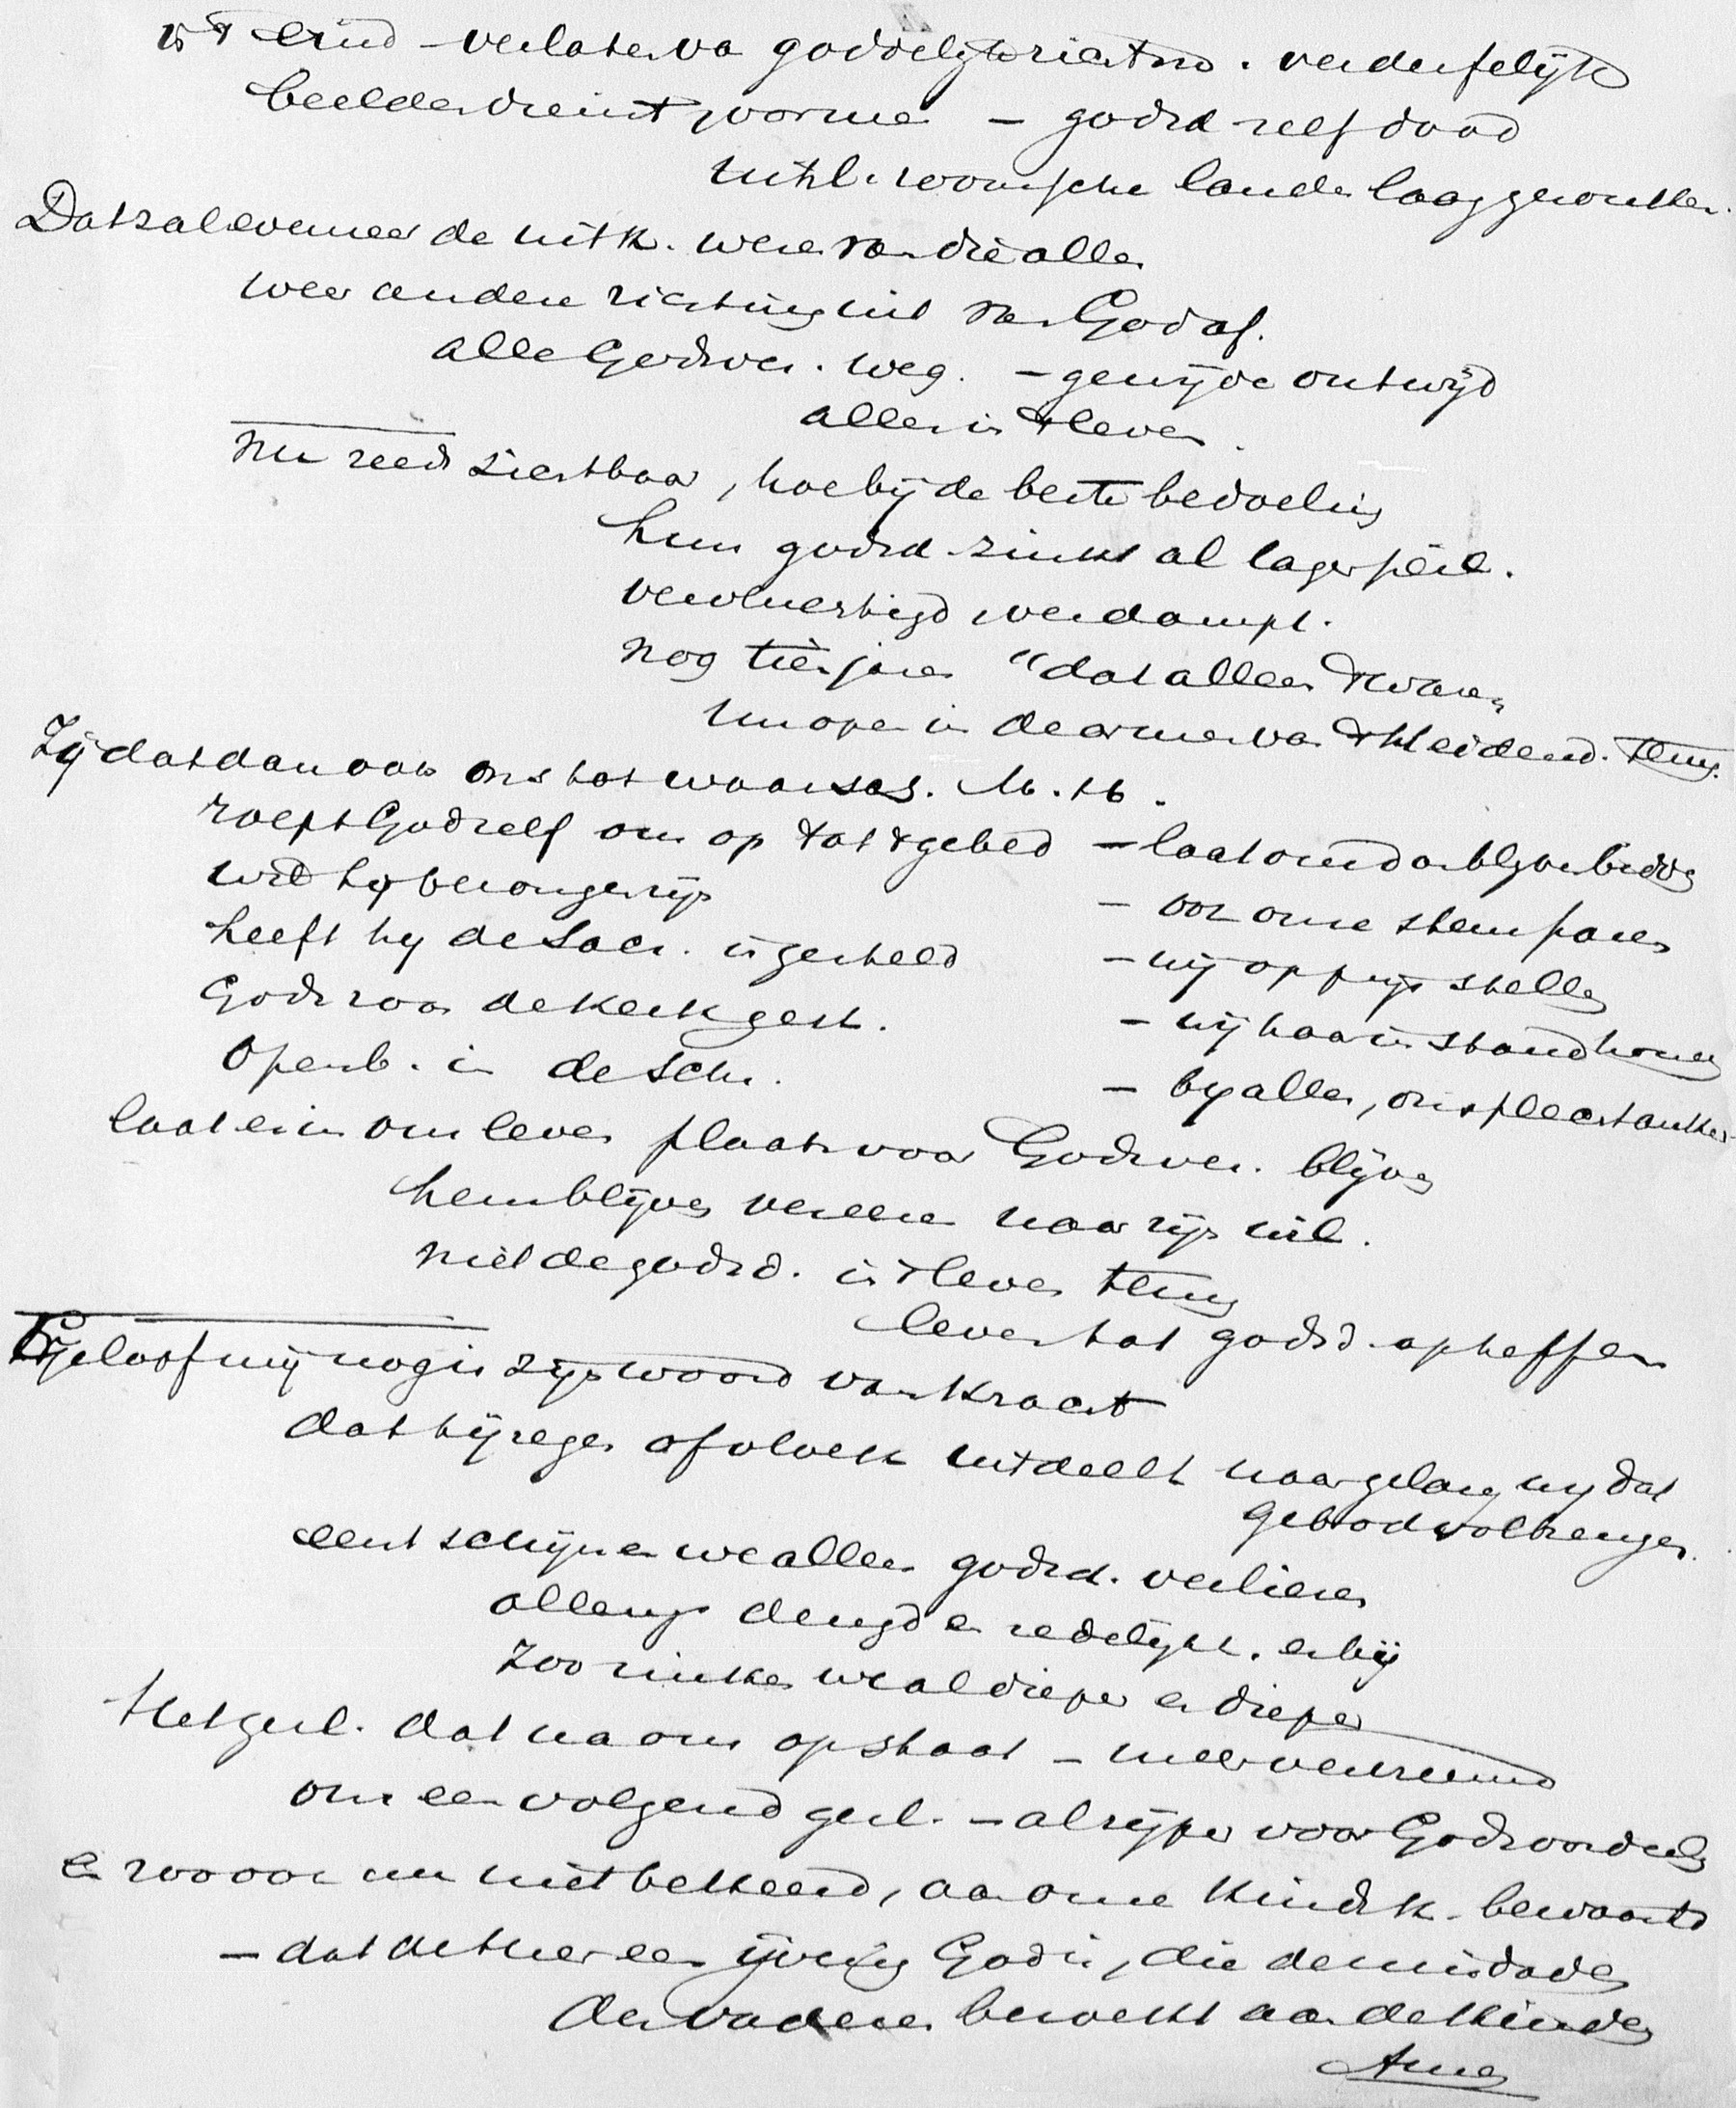 is 't eind - verlaten va goddelijk richtsn. verderfelijk
beeldendienst vormen - godsd zelf dood
uitl. roomsche landen laag gezonken.
Dat zal evenzeer de uitk. wezen van die allen
weer andere richting uit van God af.
alle Godsver. weg. - gewijde ontwijd
alles in 't leven.
Nu reeds zichtbaar, hoe bij de beste bedoeling
hun godsd. zinkt al lager peil.
vervluchtigd verdampt.
nog tien jaren "dat alles
in de armen va 't Heidend. terug.
Zij dat dan ook ons tot waarsch.
roept God zelf ons op tot 't gebed - laat ons dan blijven bidden
wil hij bezongen zijn - ook onze stem paren
heeft hij de Sacr. ingesteld - wij op prijs stellen
Gods zoon de kerk gest. - wij haar in stand houden
Openb. in de Schr. - bij alles, ons plechtanker
laat er in ons leven plaats voor Godsver. blijven
hem blijven vereeren naar zijn wil.
niet de godsd. in 't leven terug
leven tot godsd. opheffen
Geloof mij nog is zijn woord van kracht
dat hij zegen of vloek uitdeelt naar gelang wij dat
gebod volbrengen.
eerst schijnen we alleen godsd. verliezen
allengs deugd en redelijkh. erbij
zoo zinken we al dieper en dieper
Het gesl. dat na ons opstaat - meer vervreemd
ons een volgend gesl. - al rijper voor Gods oordeel
En zoo ook nu niet bekeerd, aan onze kindsk. bewaarh
- dat de Heer een ijverig God is, die de misdaden
der vaderen bezoekt aan de kinderen
Amen